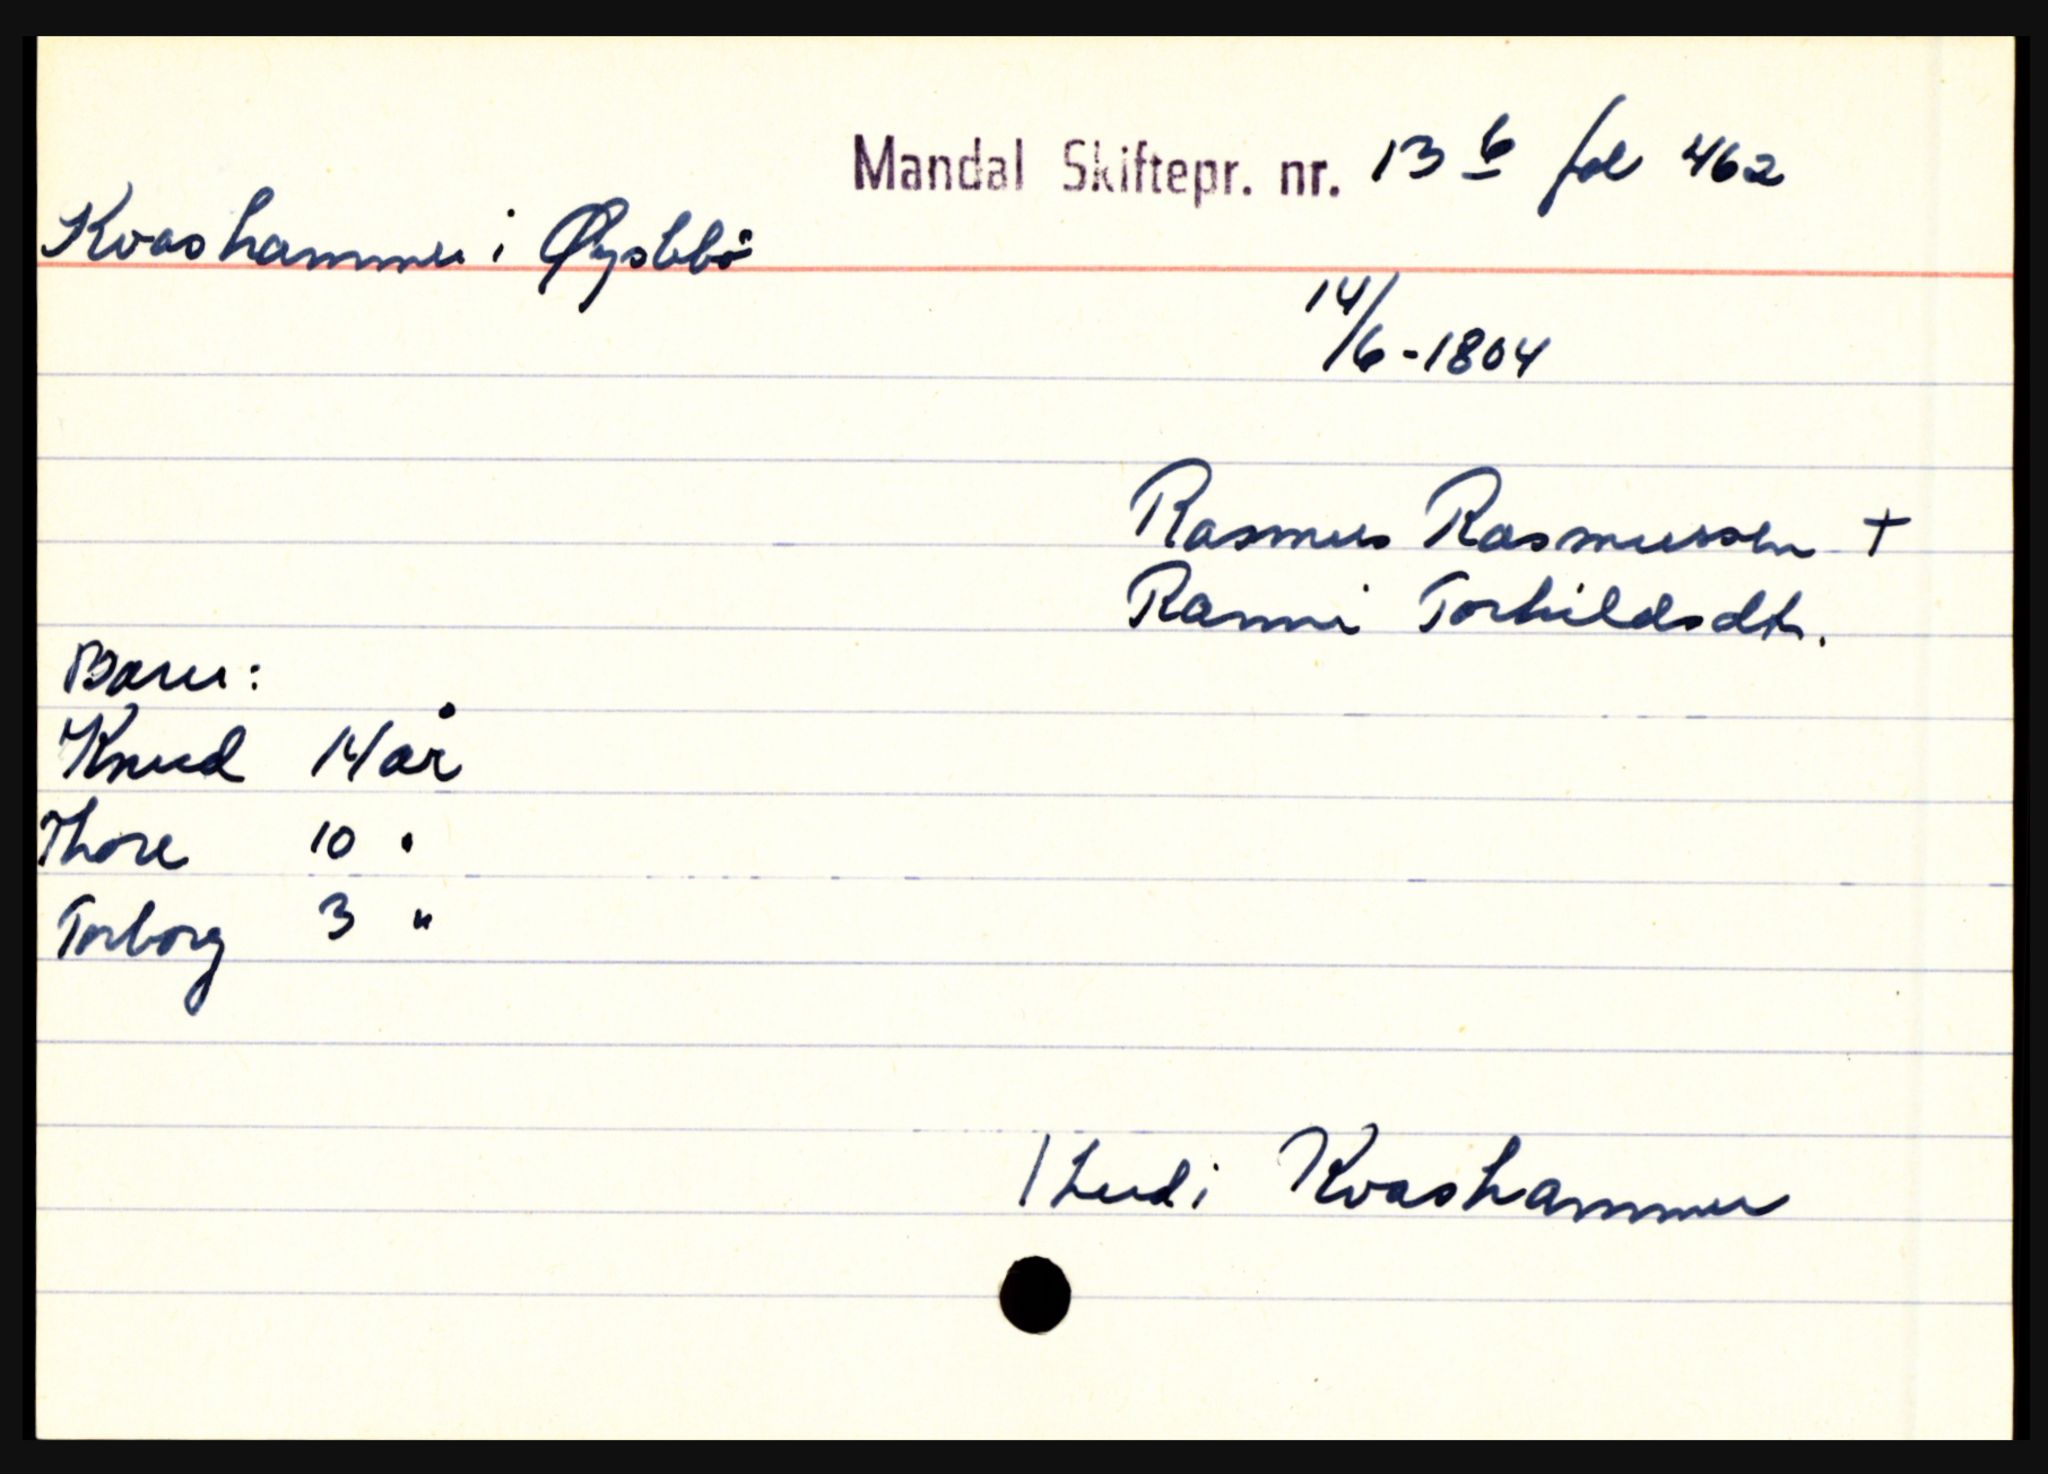 Mandal Skiftepr. nr. 13 b fol 462
Kvashammer i Øyslebö
14/6-1804
Rasmus Rasmussen +
Ranni Torkildsdtr.
Barn:
Knud 14 år
Thore 10 "
Torborg 3 "
1 hud i Kvashammer